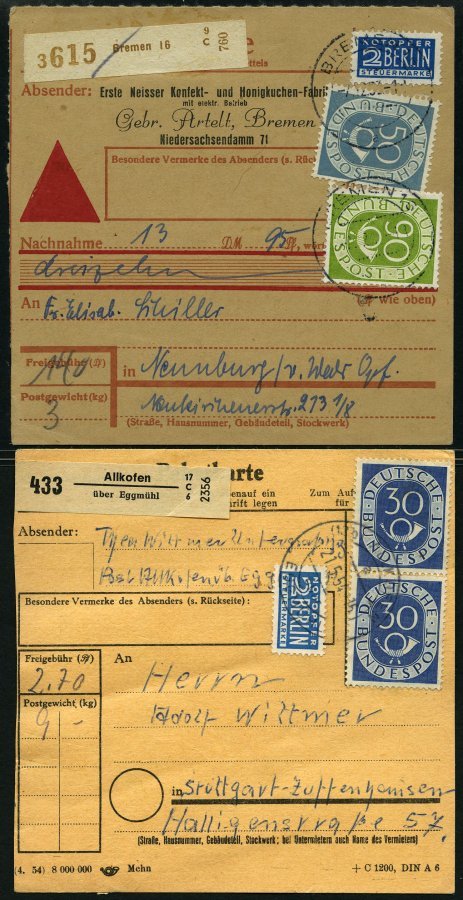 3615 Bremen 16 9 C 760
NOTOPFER
2 BERLIN
STEUERMARKE
Absender: Erste Neisser Konfekt- und Honigkuchen-Fabrik
mit elektr. Betrieb
Gebr. Artelt, Bremen
Niedersachsendamm 71
Besondere Vermerke des Absenders (s. Rück
DEUTSCHE
BUNDESPOST
50
DEUTSCHE
BUNDESPOST
90
Nachnahme 13 DM 95 Pf, wört
dreizehn
An Fr. Elisab. Schiller (wie oben)
Freigebühr (₰)
140
in Neunburg/v. Wald Opf.
Postgewicht (kg)
3
Neukirchenerstr. 213 1/8
(Straße, Hausnummer, Gebäudeteil, Stockwerk)
433 Allkofen 17 C 6 2356
über Eggmühl
karte
senauf ein Zum Auf
hrift legen
DEUTSCHE
BUNDESPOST
30
Absender:
Besondere Vermerke des Absenders (s. Rückseite):
NOTOPFER
2 BERLIN
STEUERMARKE
DEUTSCHE
BUNDESPOST
30
Freigebühr (₰) An
2.70 Herrn
Postgewicht (kg)
9 - Adolf Wittmer
in Stuttgart-Zuffenhausen
Halligenstraße 57.
(Straße, Hausnummer, Gebäudeteil, Stockwerk; bei Untermietern auch Name des Vermieters)
(4. 54) 8 000 000 Mchn + C 1200, DIN A 6